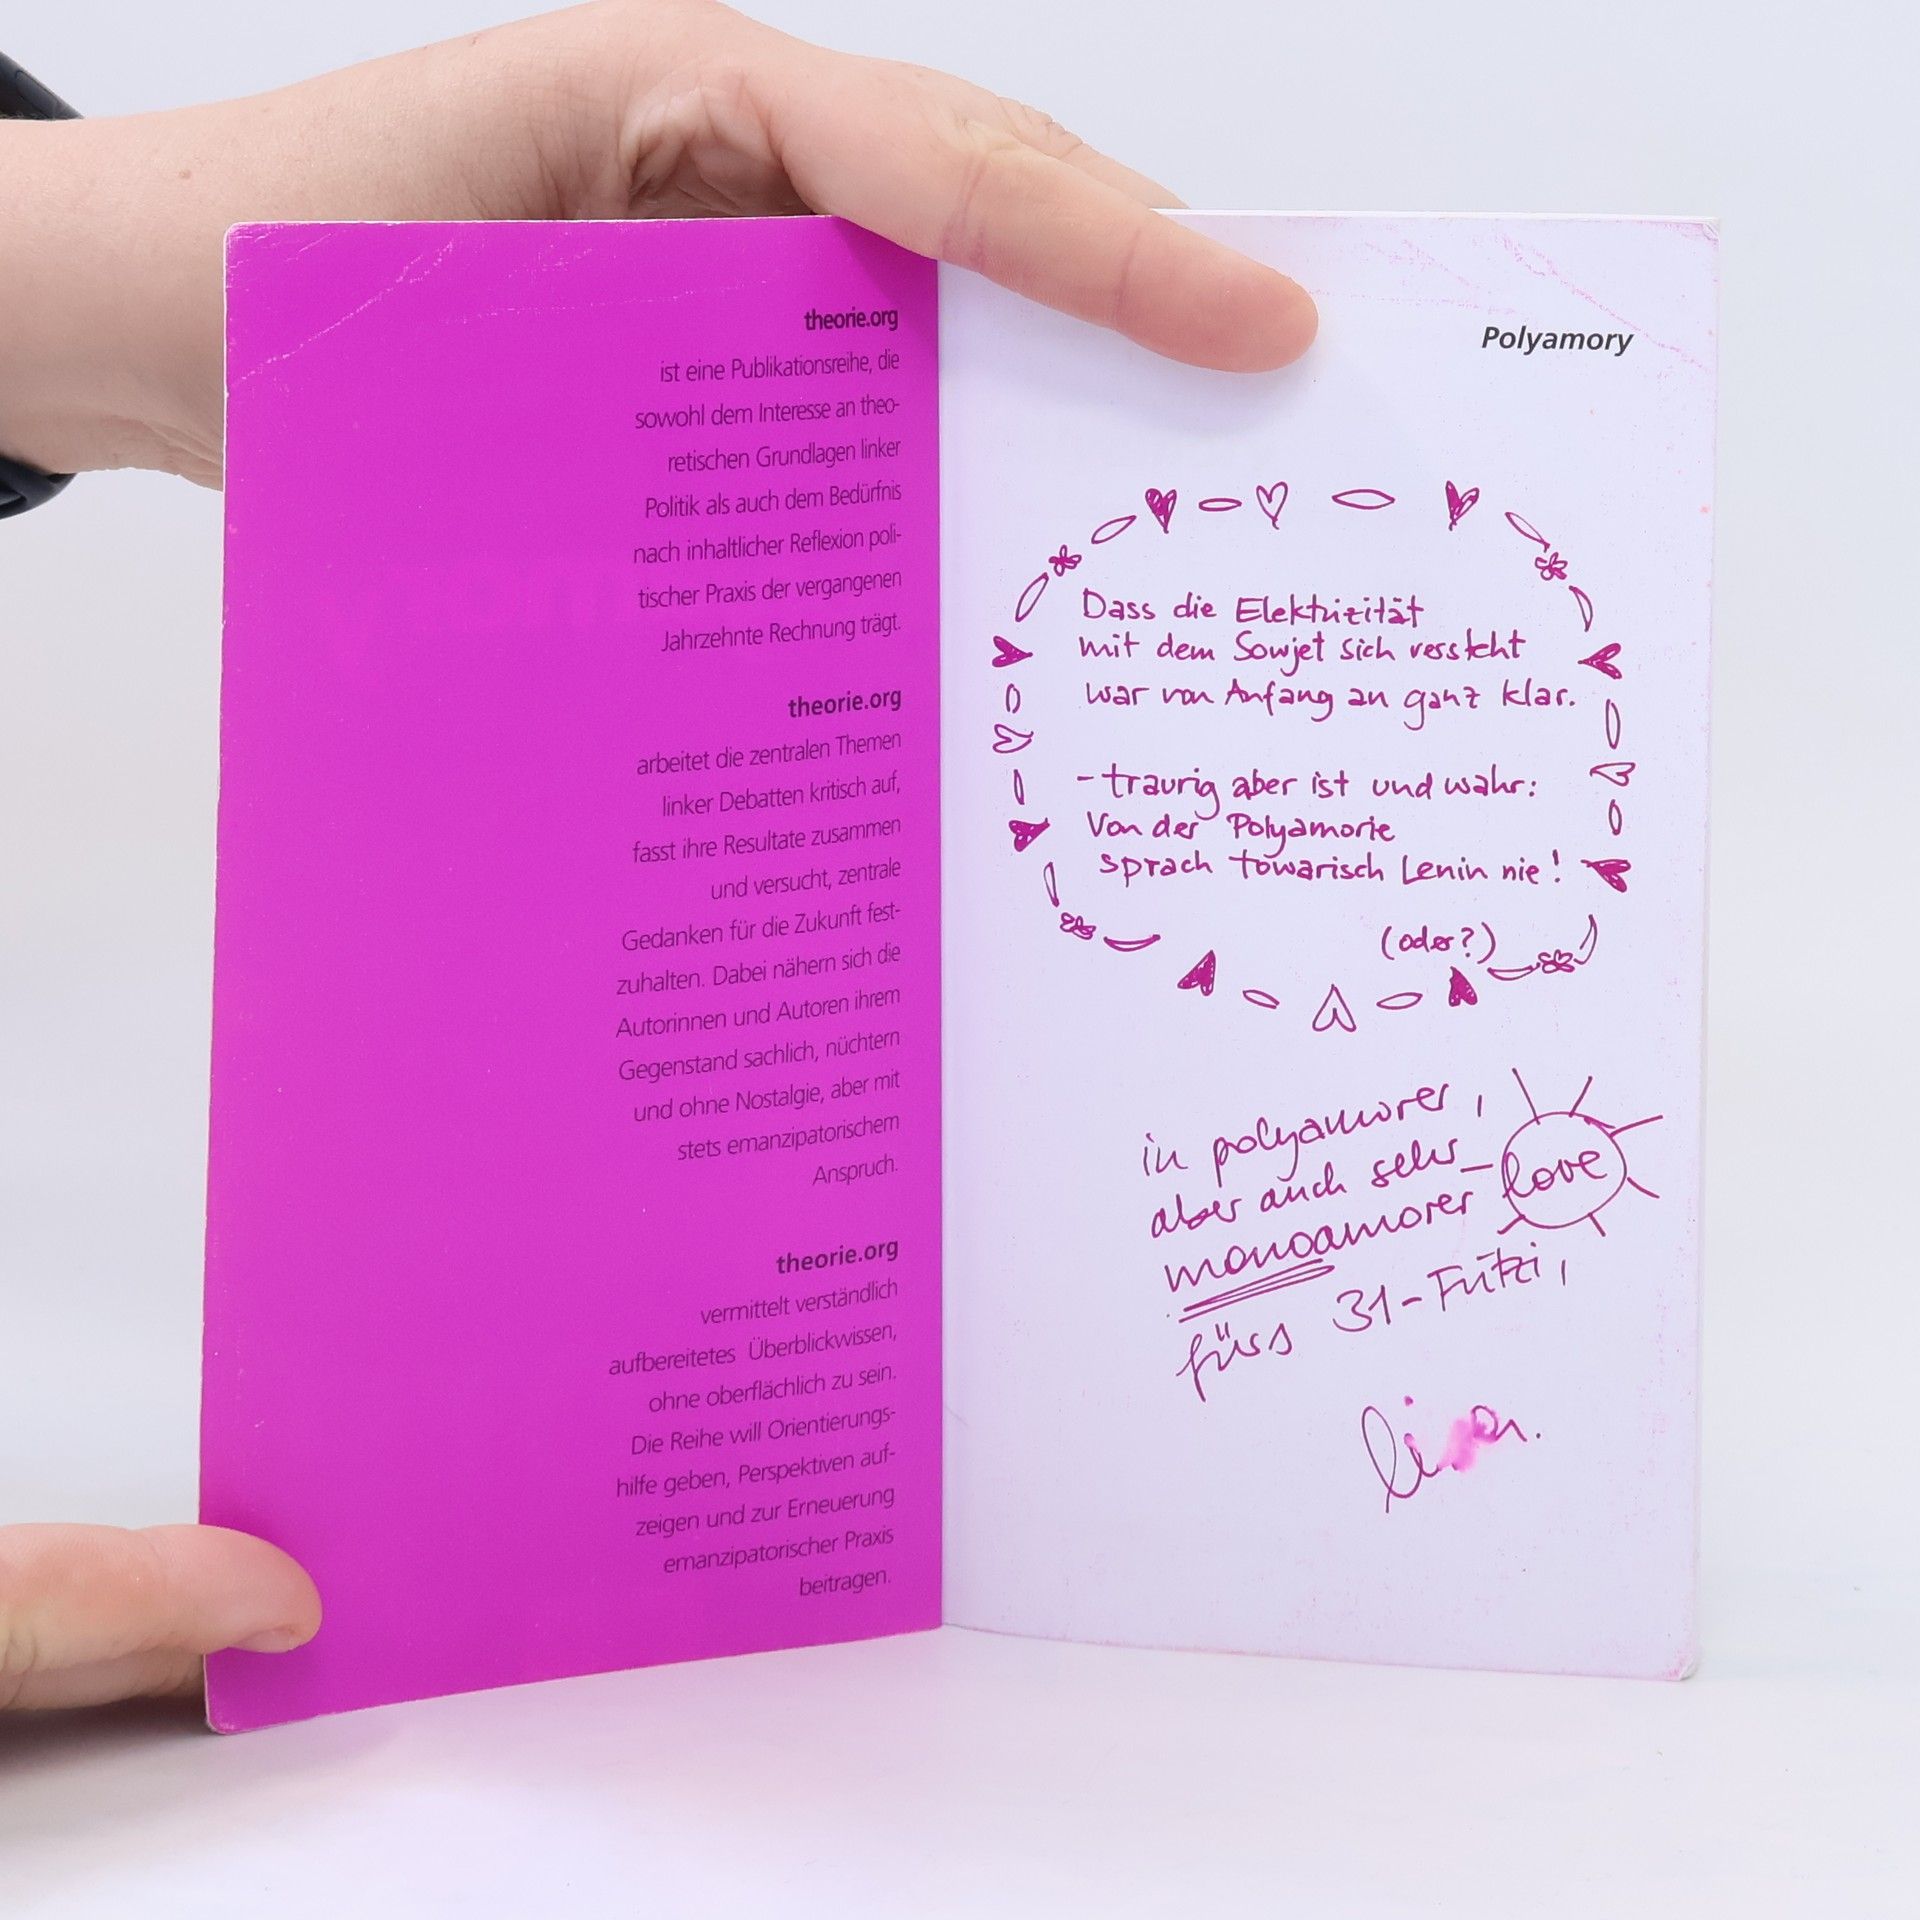 theorie.org
ist eine Publikationsreihe, die
sowohl dem Interesse an theo-
retischen Grundlagen linker
Politik als auch dem Bedürfnis
nach inhaltlicher Reflexion poli-
tischer Praxis der vergangenen
Jahrzehnte Rechnung trägt.
theorie.org
arbeitet die zentralen Themen
linker Debatten kritisch auf,
fasst ihre Resultate zusammen
und versucht, zentrale
Gedanken für die Zukunft fest-
zuhalten. Dabei nähern sich die
Autorinnen und Autoren ihrem
Gegenstand sachlich, nüchtern
und ohne Nostalgie, aber mit
stets emanzipatorischem
Anspruch.
theorie.org
vermittelt verständlich
aufbereitetes Überblickwissen,
ohne oberflächlich zu sein.
Die Reihe will Orientierungs-
hilfe geben, Perspektiven auf-
zeigen und zur Erneuerung
emanzipatorischer Praxis
beitragen.
Polyamory
Dass die Elektrizität
mit dem Sowjet sich versteht
war von Anfang an ganz klar.
- traurig aber ist und wahr:
Von der Polyamorie
sprach towarisch Lenin nie!
(oder?)
in polyamorer,
aber auch sehr
monoamorer love
fürs 31-Futzi,